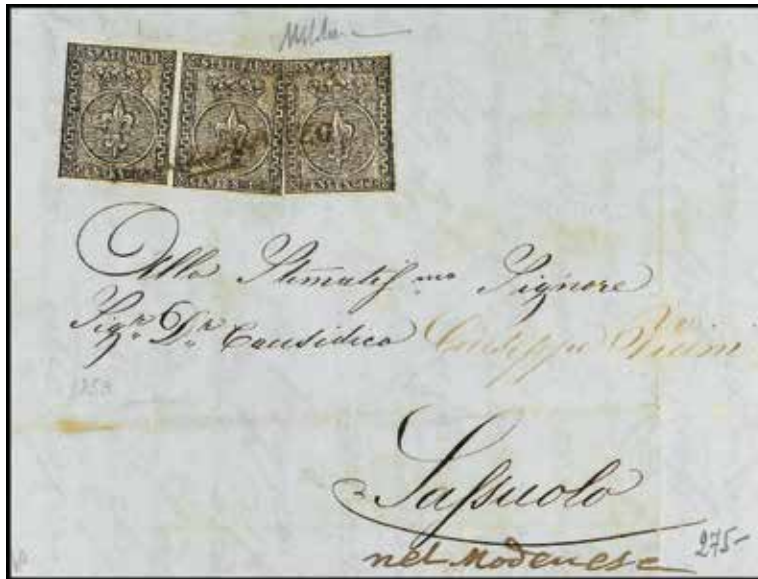 STATI PARM.
Alla Stimatiss.mo Signore
Sig.r D.r Causidico Giuseppe
1853
Sassuolo
nel Modenese
275-